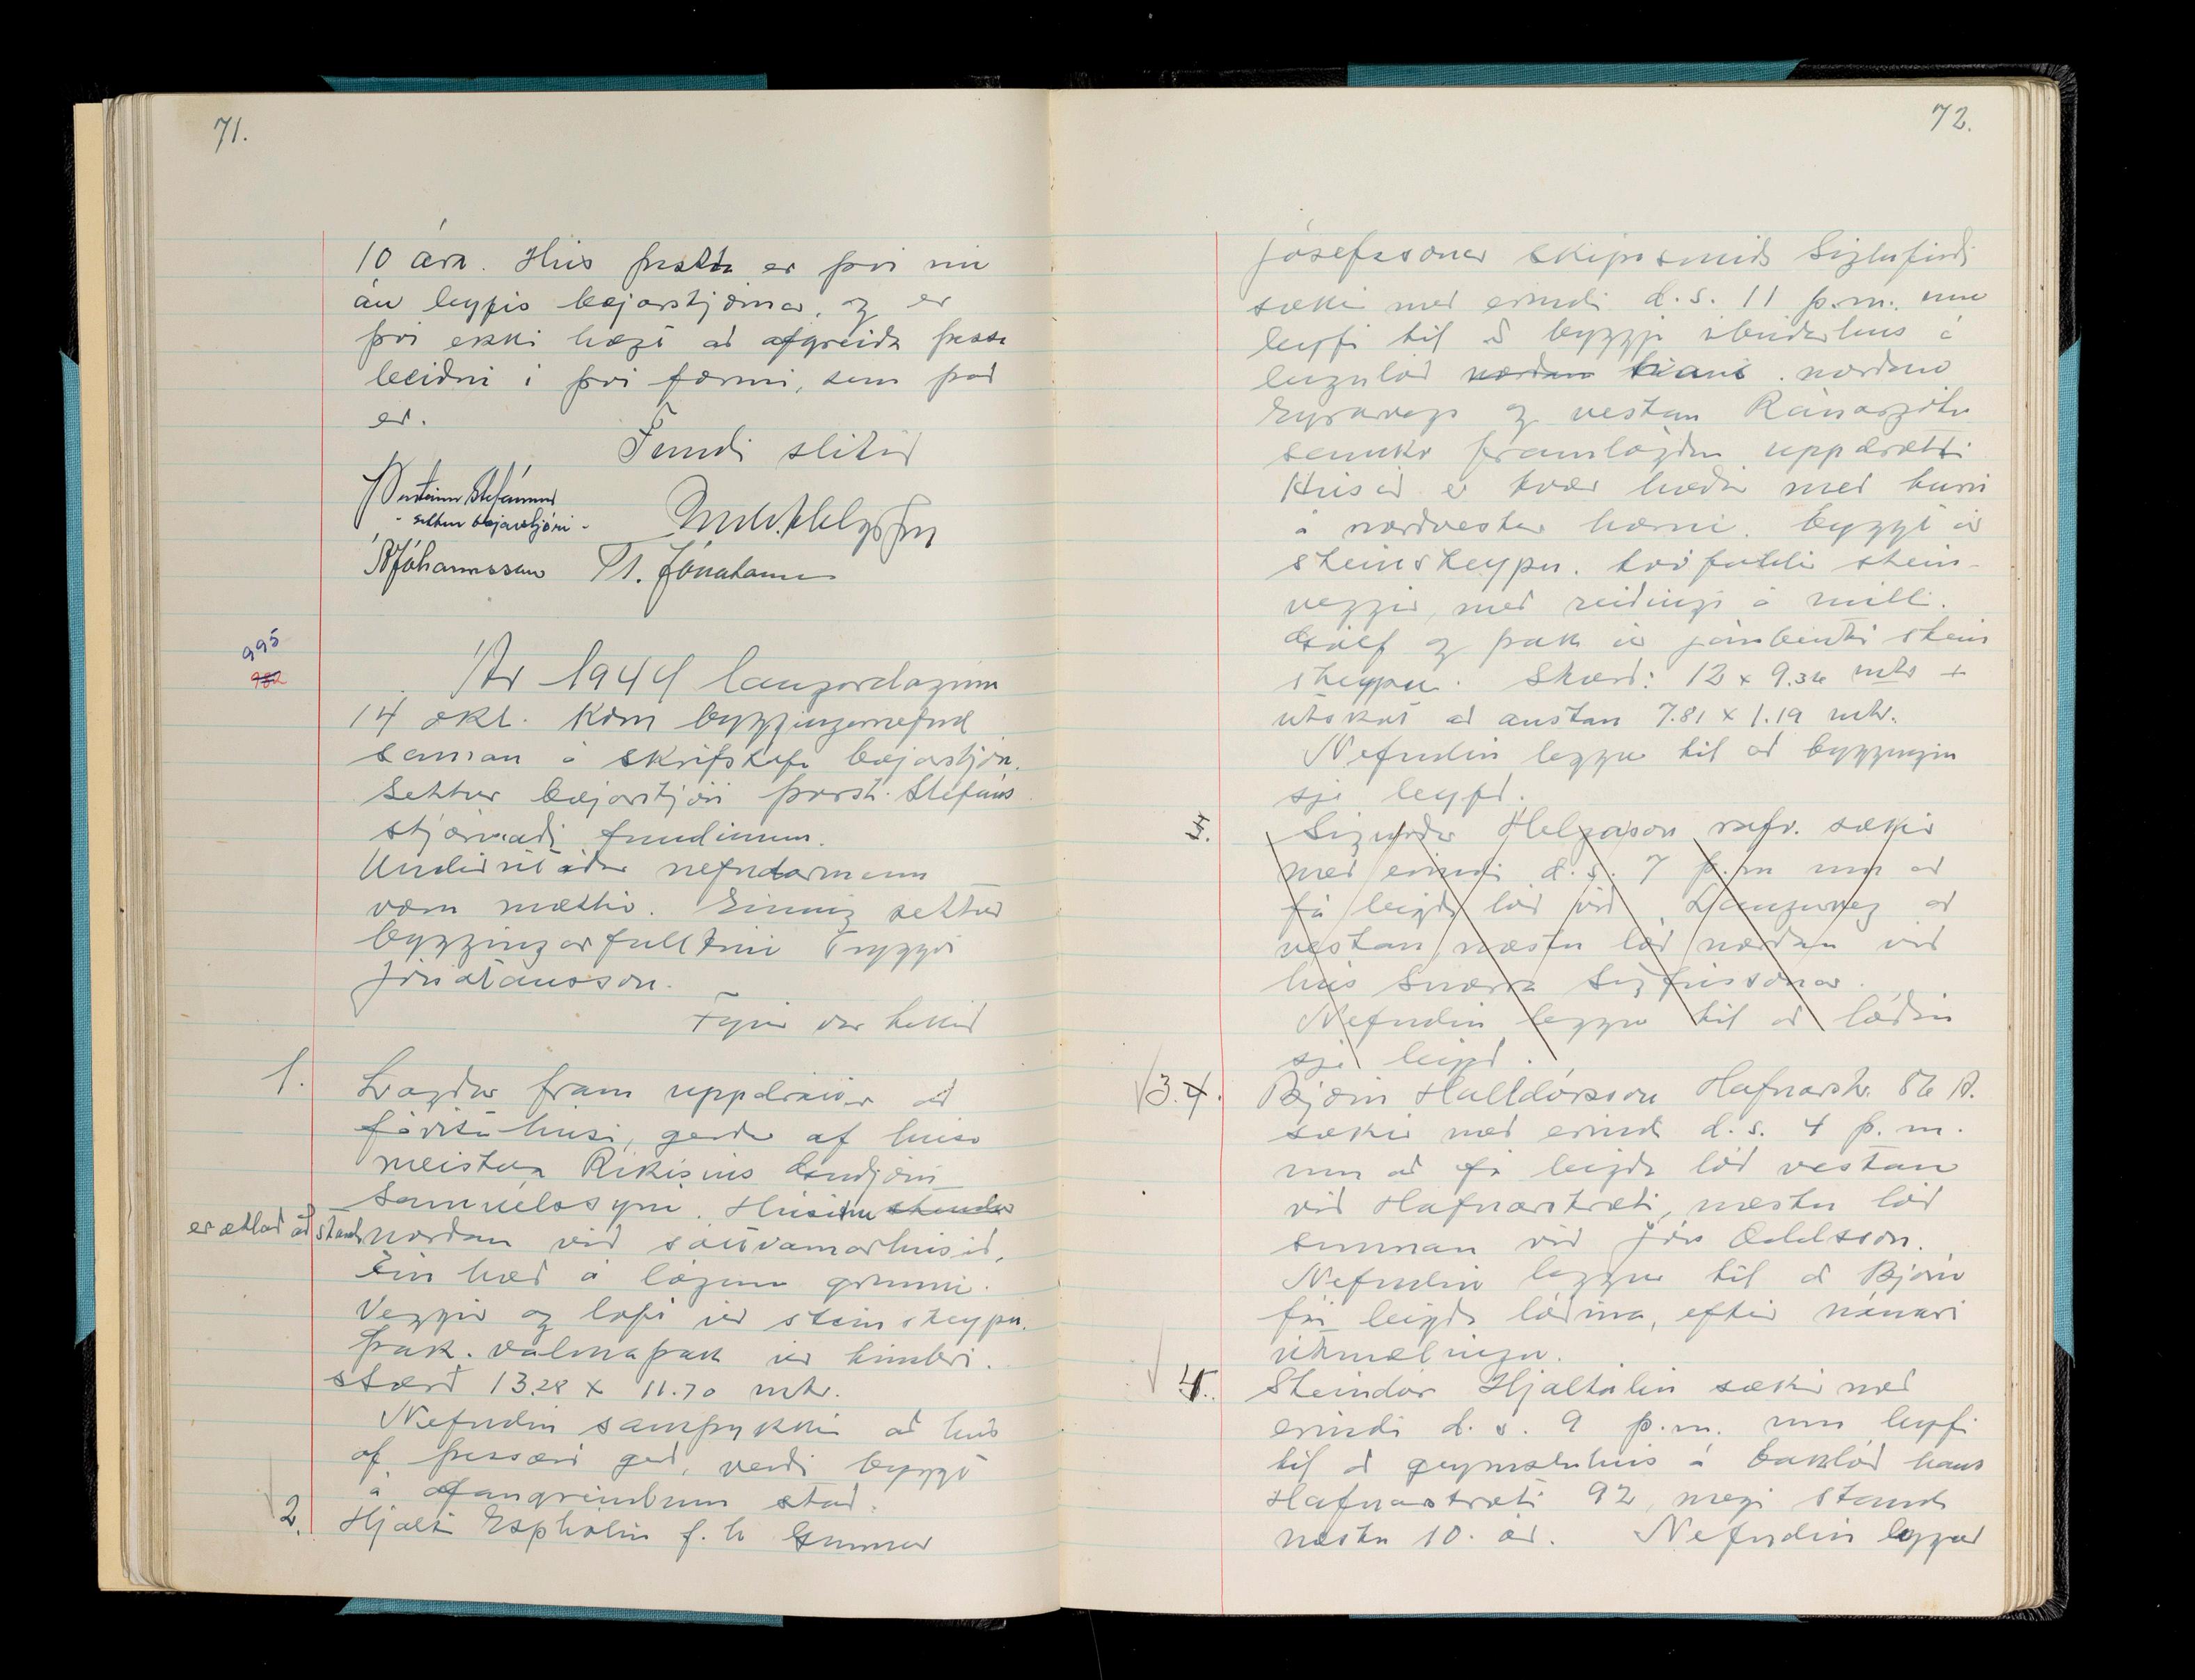 71.
10 ára. Hús þetta er því nú
án leyfis bæjarstjórnar, og er
því ekki hægt að afgreiða þessa
beiðni í því formi, sem það
er.
Fundi slitið
Þorsteinn Stefánsson
- settur bæjarstjóri -
Jóhannsson Tr. Jónatanss
995
982
Ár 1944 laugardaginn
14 okt. kom byggingarnefnd
saman á skrifstofu bæjarstjór.
Settur bæjarstjóri Þorst. Stefáns
stjórnaði fundinum.
Undirritaðir nefndarmenn
voru mættir. Einnig settur
byggingarfulltrúi Tryggvi
Jónatansson.
Fyrir var tekið
1. Lagður fram uppdráttur að
fóvitahúsi, gerður af húsa
meistara Ríkisins Guðjóni
Samúelssyni. Húsinu standa
er ætlað að standa norðan við sóttvarnarhúsið.
Ein hæð á lágum grunni.
Veggir og loft úr steinsteypu.
Þak. valmaþak úr timbri.
stærð 13.28 x 11.70 mtr.
Nefndin samþykkir að hús
af þessari gerð, verði byggt
á ofangreindum stað.
2. Hjalti Espholin f.h. Gunnar
72.
Jósefssonar skipasmiðs Siglufirði
sækir með erindi d.s. 11 þ.m. um
leyfi til að byggja íbúðarhús á
leigulóð norðan hans. norðan
Eyrarvegs og vestan Ránargötu
samkv framlögðum uppdrætti
Húsið er tvær hæðir með turni
á norðvestur horni. byggt úr
steinsteypu. tvöfaldir stein-
veggir, með reiðingi á milli.
Gólf og þak úr járnbentri stein
steypu. Stærð: 12 x 9.34 mtr +
útskot að austan 7.81 x 1.19 mtr.
Nefndin leggur til að byggingin
sje leyfð.
Sigurður Helgason rafv. sækir
með erindi d.s. 7 þ.m um að
fá leigða lóð við Laugarveg að
vestan, næstu lóð norðan við
hús Snorra Sigfússonar.
Nefndin leggur til að lóðin
sje leigð.
3. 4. Björn Halldórsson Hafnarstr. 86 A.
sækir með erindi d.s. 4 þ.m.
um að fá leigða lóð vestan
við Hafnarstræti, næstu lóð
sunnan við Jón Oddsson.
Nefndin leggur til að Björn
fái leigða lóðina, eftir nánari
útmælingu.
4. Steindór Hjaltalín sækir með
erindi d.s. 9 þ.m. um leyfi
til að geymsluhús á baklóð hans
Hafnarstræti 92, megi standa
næstu 10. ár. Nefndin leggur